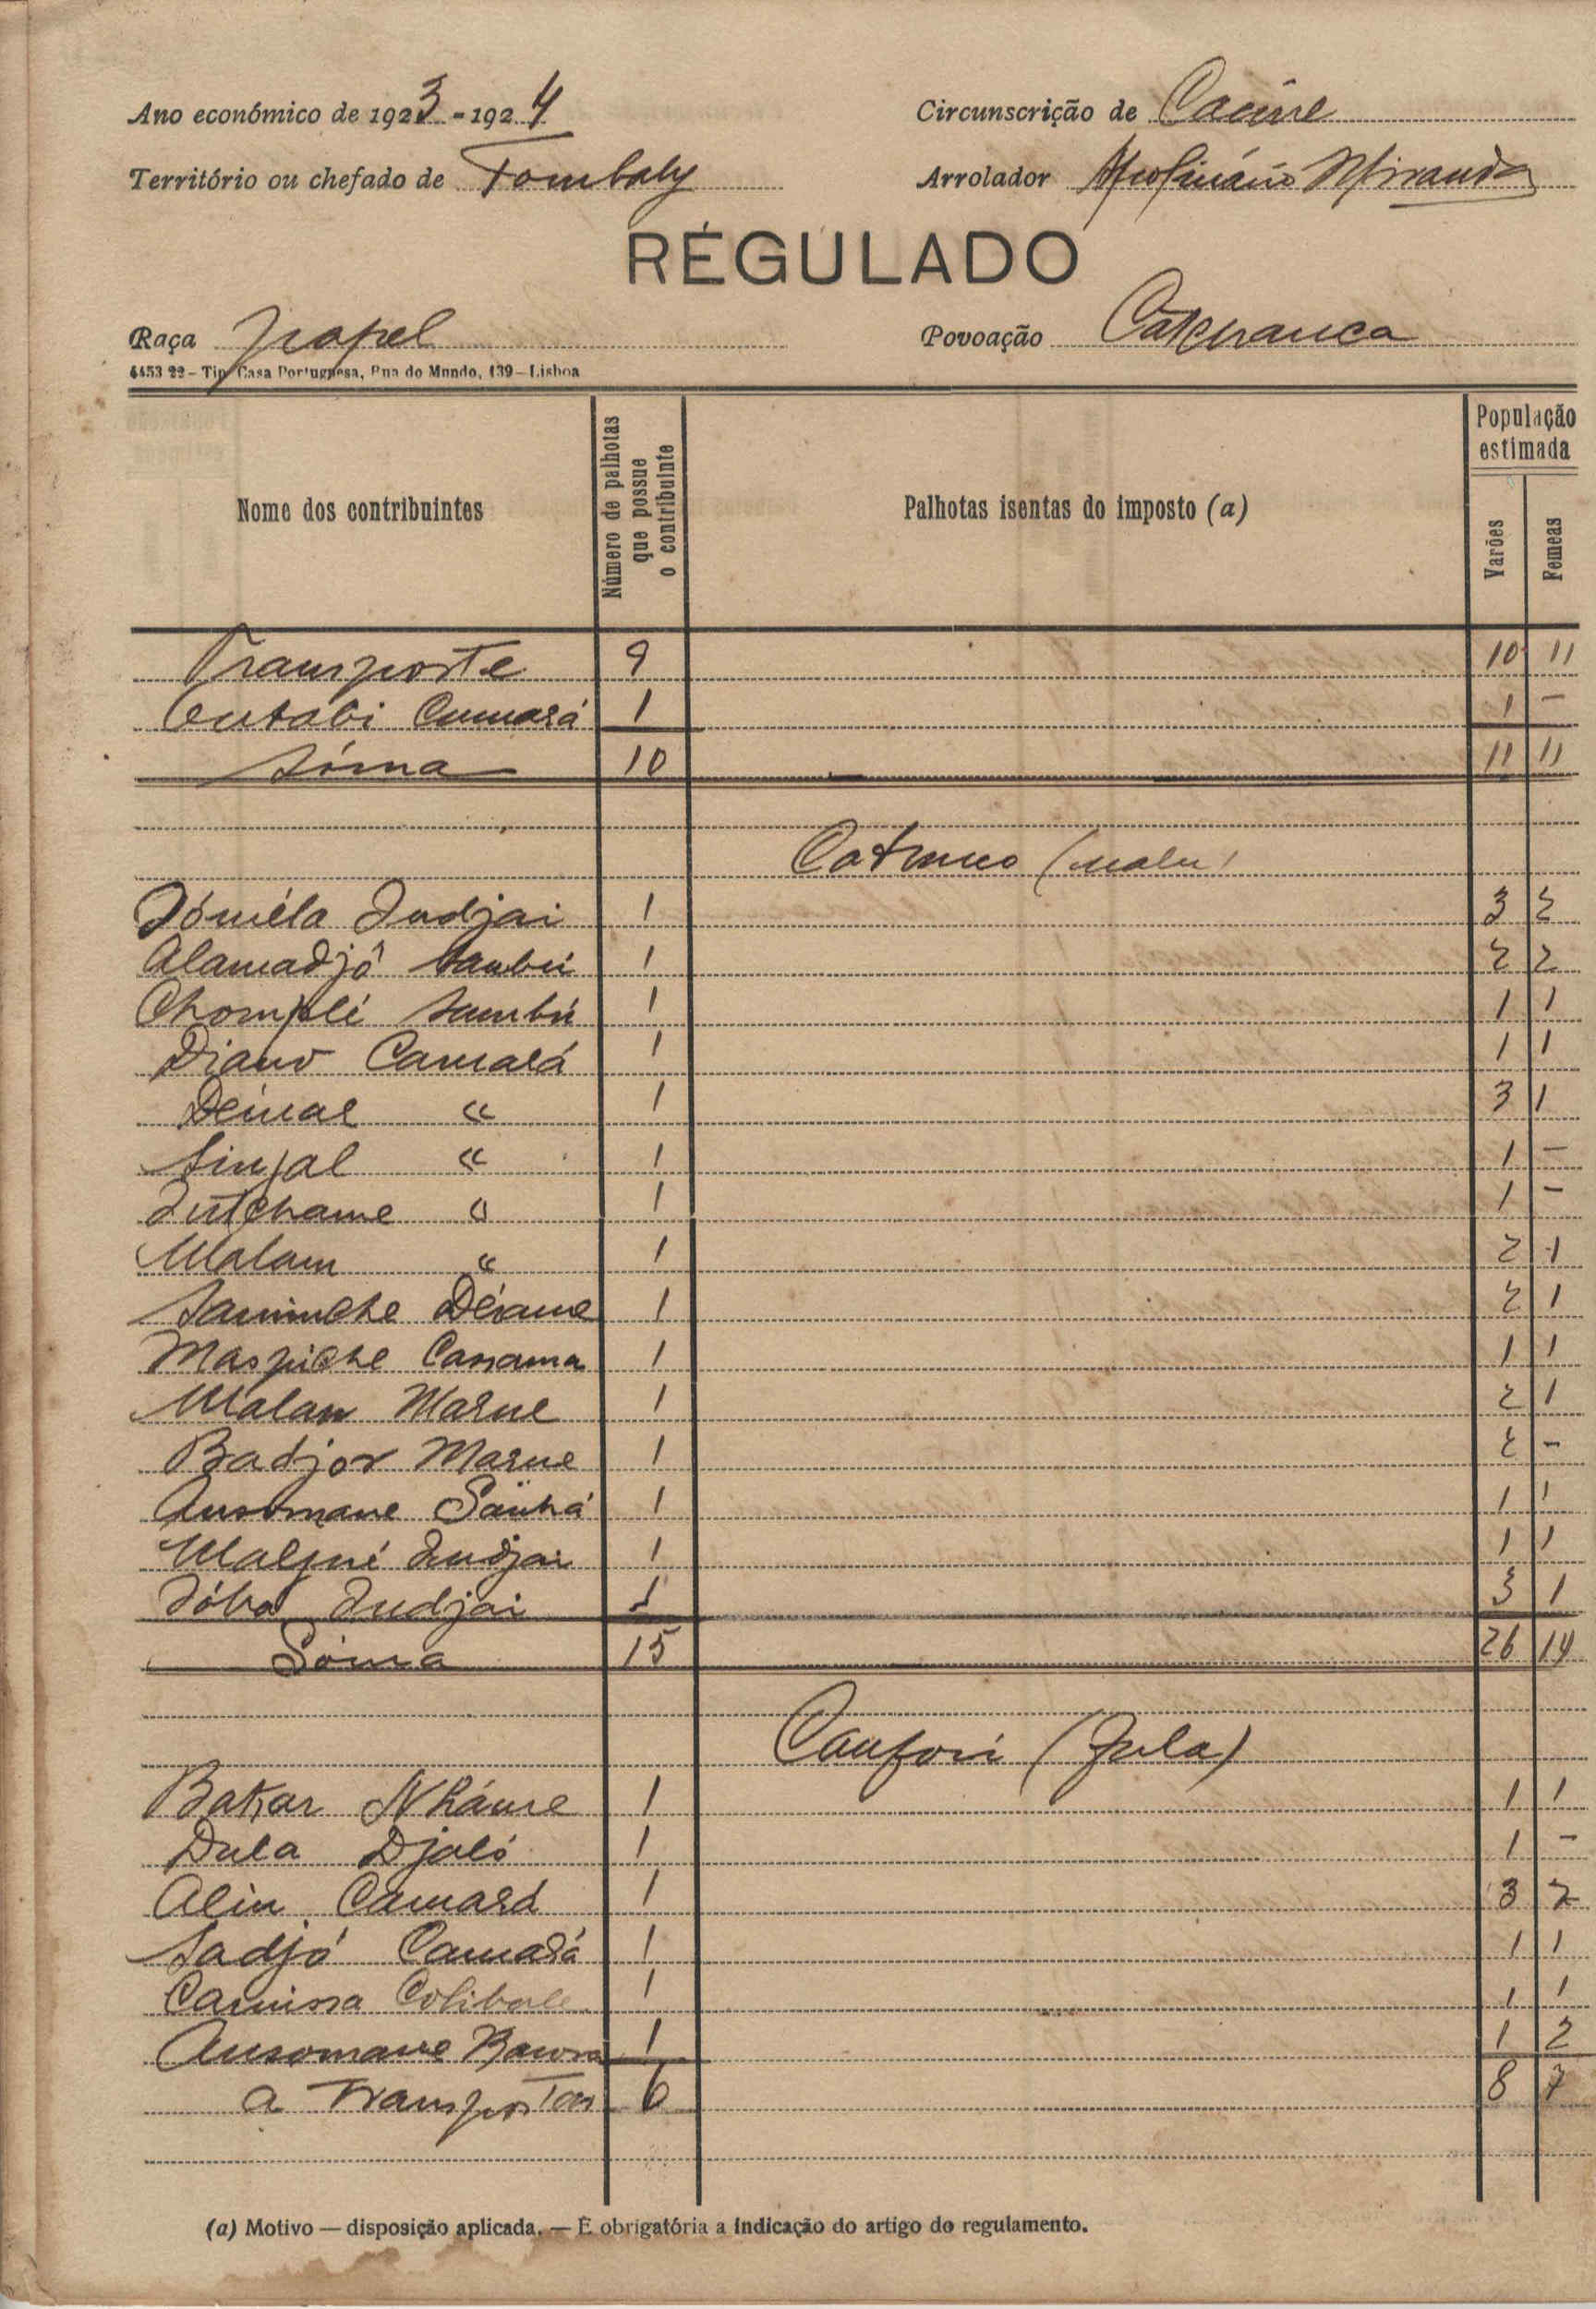 Ano económico de 1923-1924
Circunscrição de Cacine
Território ou chefado de Tombaly
Arrolador Apolinário Miranda
RÉGULADO
Raça papel
Povoação Catchanca
4453 22 – Tip. Casa Portuguesa, Rua do Mundo, 139 – Lisboa
Nome dos contribuintes
Número de palhotas que possue o contribuinte
Palhotas isentas do imposto (a)
População estimada
Varões
Femeas
Transporte 9 10 11
Cutabi Camará 1 1 –
Sóma 10 11 11
(nalu)
Indjai 1 3 2
Alamadjô Sambú 1 2 2
Chomplé Sambú 1 1 1
Diano Camará 1 1 1
Demal « 1 3 1
Sinfal « 1 1 –
Intchame « 1 1 –
Malam « 1 2 1
1 2 1
Maspiche Cassama 1 1 1
Malan Marne 1 2 1
Badjor Marne 1 2 –
Ansomane Sanhá 1 1 1
Malqué Indjai 1 1 1
Jóba Indjai 1 3 1
Sóma 15 26 14
Caufori (Fula)
Bakar Nháure 1 1 1
Dula Djaló 1 1 –
Aliu Camará 1 3 2
Sadjó Camará 1 1 1
Camissa Colibale 1 1 1
Ansomane 1 1 2
a Transportar 6 8 7
(a) Motivo — disposição aplicada. — É obrigatória a indicação do artigo do regulamento.